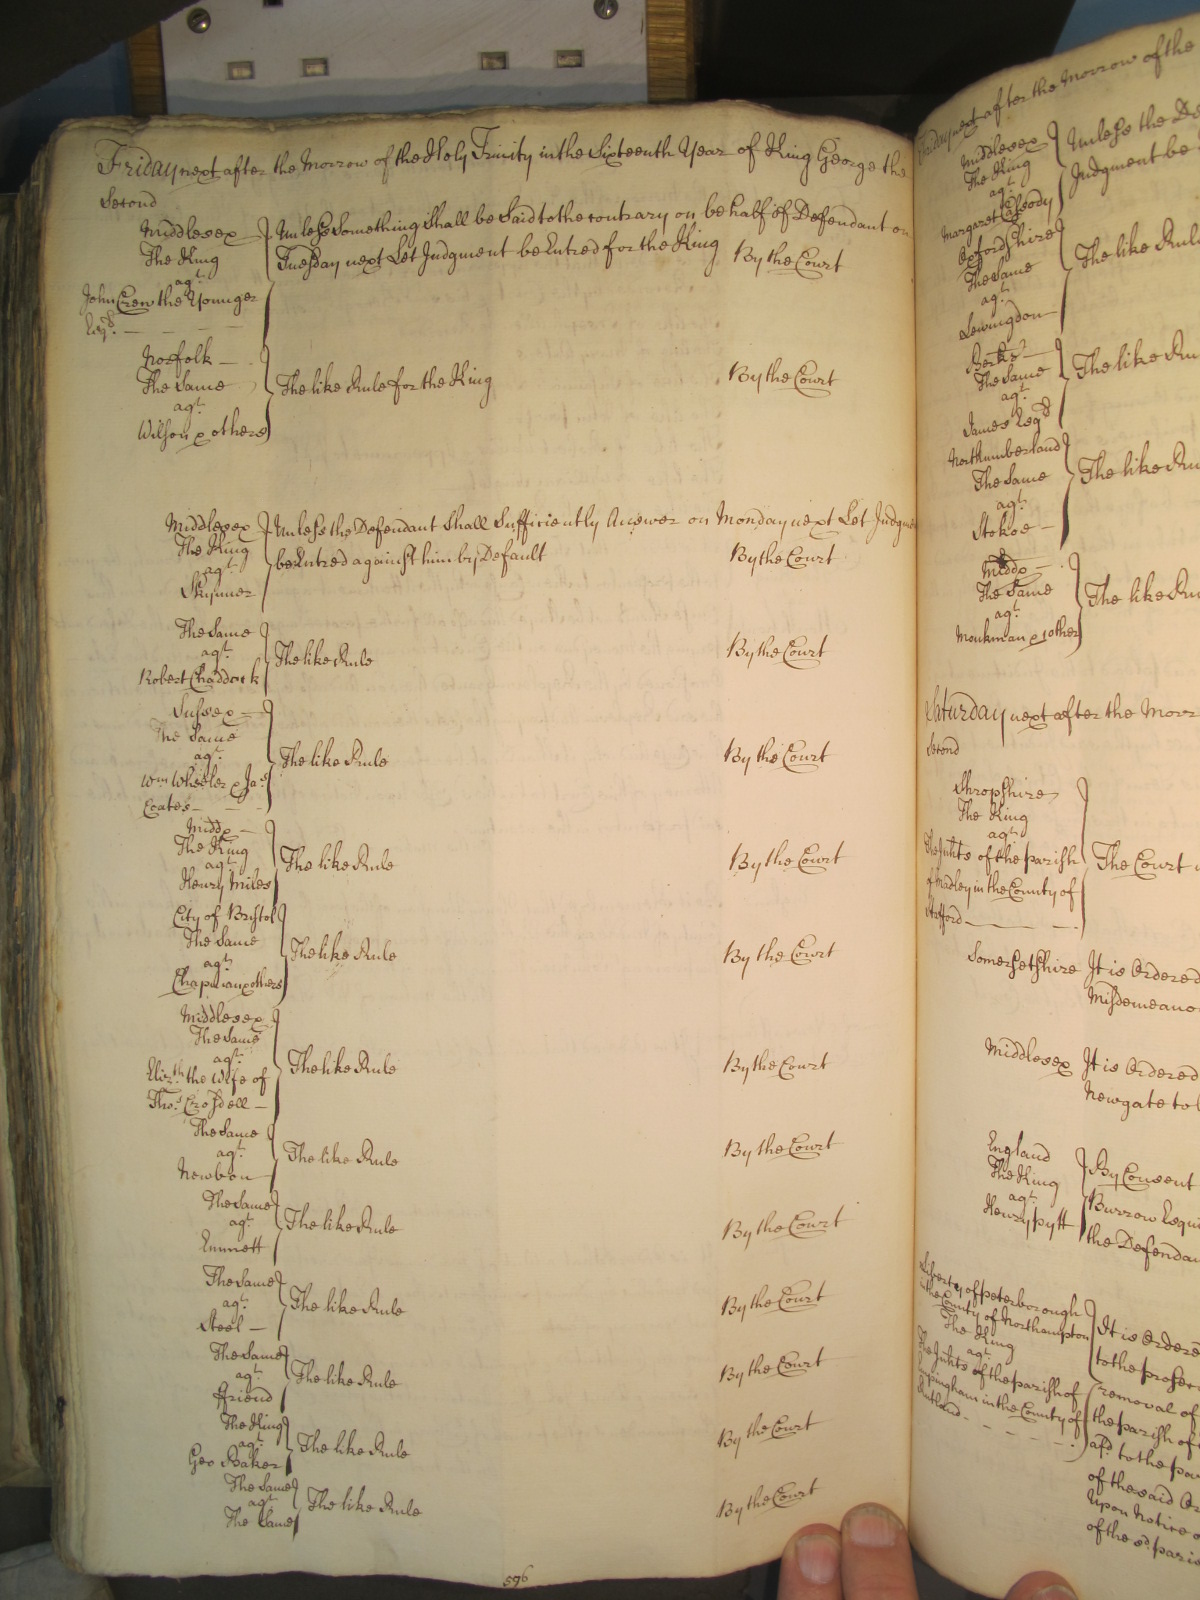 Friday next after the Morrow of the Holy Trinity in the Sixteenth Year of King George the
Second
Middlesex
The King
agt.
John Crew the Younger
Esqr.
Unless Something Shall be Said to the contrary on behalf of Defendant on
Tuesday next Let Judgment be Entred for the King By the Court
Norfolk
The Same
agt.
Wilson & others
The like Rule for the King By the Court
Middlesex
The King
agt.
Skynner
Unless the Defendant Shall Sufficiently Answer on Monday next Let Judgme
be Entred against him by Default By the Court
The Same
agt.
Robert Chaddock
The like Rule By the Court
Sussex
The Same
agt.
Wm. Wheeler & Jas.
Coates
The like Rule By the Court
Middx
The King
agt.
Henry Miles
The like Rule By the Court
City of Bristol
The Same
agt.
Chapman & others
The like Rule By the Court
Middlesex
The Same
agt.
Elizth. the Wife of
Thos. Crosdell
The like Rule By the Court
The Same
agt.
Newbon
The like Rule By the Court
The Same
agt.
Emmett
The like Rule By the Court
The Same
agt.
Steel
The like Rule By the Court
The Same
agt.
Friend
The like Rule By the Court
The King
agt.
Geo Baker
The like Rule By the Court
The Same
agt.
The Same
The like Rule By the Court
596
Friday next after the Morrow of the
Middlesex
The King
agt.
Margaret
Unless the De
Judgment be
Oxfordshire
The Same
agt.
Lewingdon
The like Rul
Berks
The Same
agt.
James Esqr.
The like Ru
Northumberland
The Same
agt.
Stokoe
The like Ru
Middx
The Same
agt.
Monkman & other
The like Ru
Saturday next after the Morr
Second
Shropshire
The King
agt.
The Inhts of the parish
of Madley in the County of
Stafford
The Court
Somersetshire It is Ordered
Misdemeano
Middlesex It is Ordered
Newgate to
England
The King
agt.
Henry pytt
By Consent
Burrow Esqu
the Defenda
Liberty of peterborough
in the County of Northampton
The King
agt.
The Inhts of the parish of
in the County of
Rutland
It is Ordere
to the prose
removal of
the parish of
afd. to the pa
of the said Or
Upon Notice
of the sd. paris